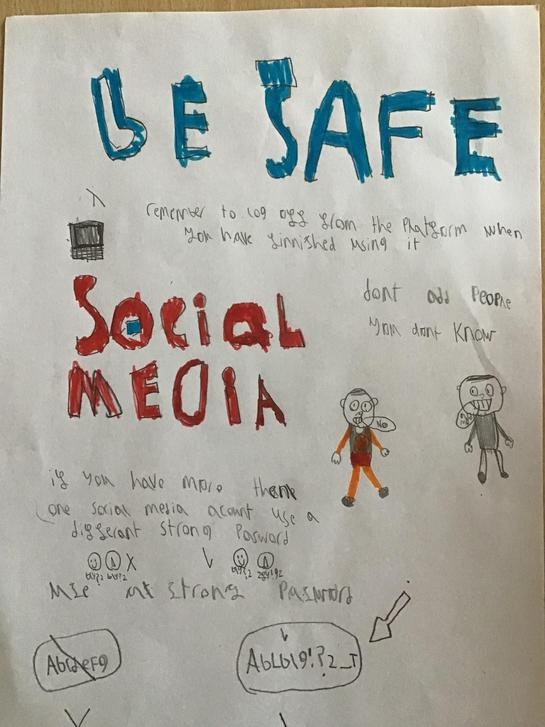 BE SAFE
remember to log off from the Platform when
you have finnished using it
Social
MEDIA
dont add People
you dont know
No
if you have more then
one social media acount use a
differant strong Pasword
use strong Password
AbcdeF9
AbLb19!?2_T